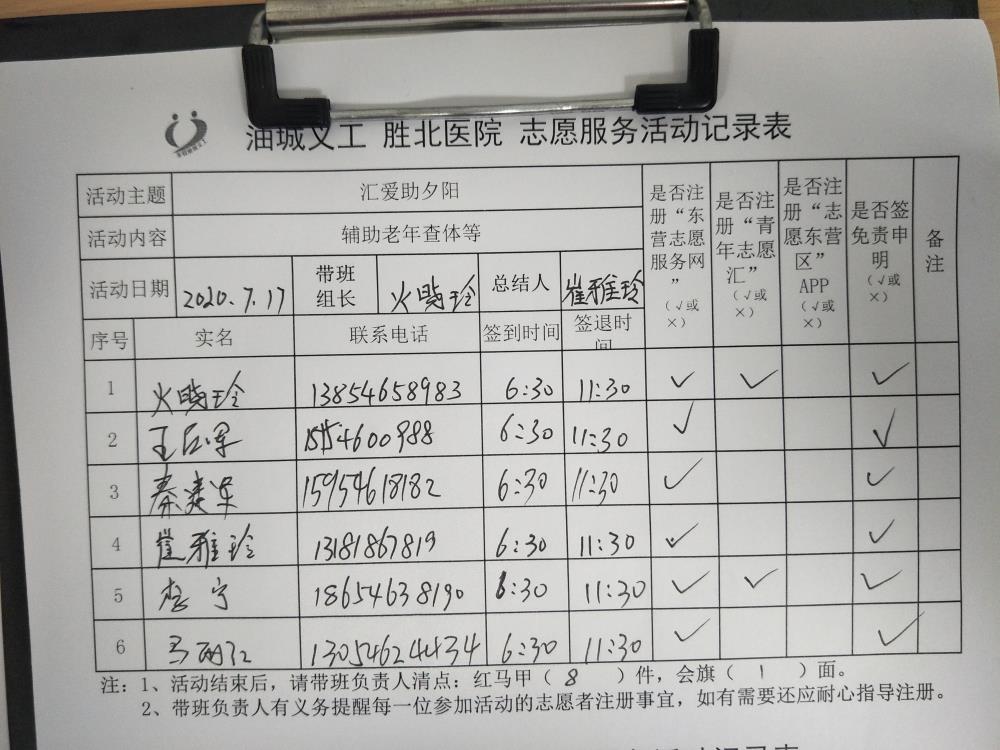 油城义工 胜北医院 志愿服务活动记录表
活动主题 汇爱助夕阳 是否注册“东营志愿服务网”（√或×） 是否注册“青年志愿汇”（√或×） 是否注册“志愿东营区”APP（√或×） 是否签免责申明（√或×） 备注
活动内容 辅助老年查体等
活动日期 2020.7.17 带班组长 火晓玲 总结人 崔雅玲
序号 实名 联系电话 签到时间 签退时间
1 火晓玲 13854658983 6:30 11:30 ✓ ✓ ✓
2 王 4600988 6:30 11:30 ✓ ✓
3 秦建军 15954618182 6:30 11:30 ✓ ✓
4 崔雅玲 13181867819 6:30 11:30 ✓ ✓
5 李宁 18654638190 6:30 11:30 ✓ ✓ ✓
6 马丽红 13054624434 6:30 11:30 ✓ ✓
注：1、活动结束后，请带班负责人清点：红马甲（ 8 ）件，会旗（ 1 ）面。
2、带班负责人有义务提醒每一位参加活动的志愿者注册事宜，如有需要还应耐心指导注册。